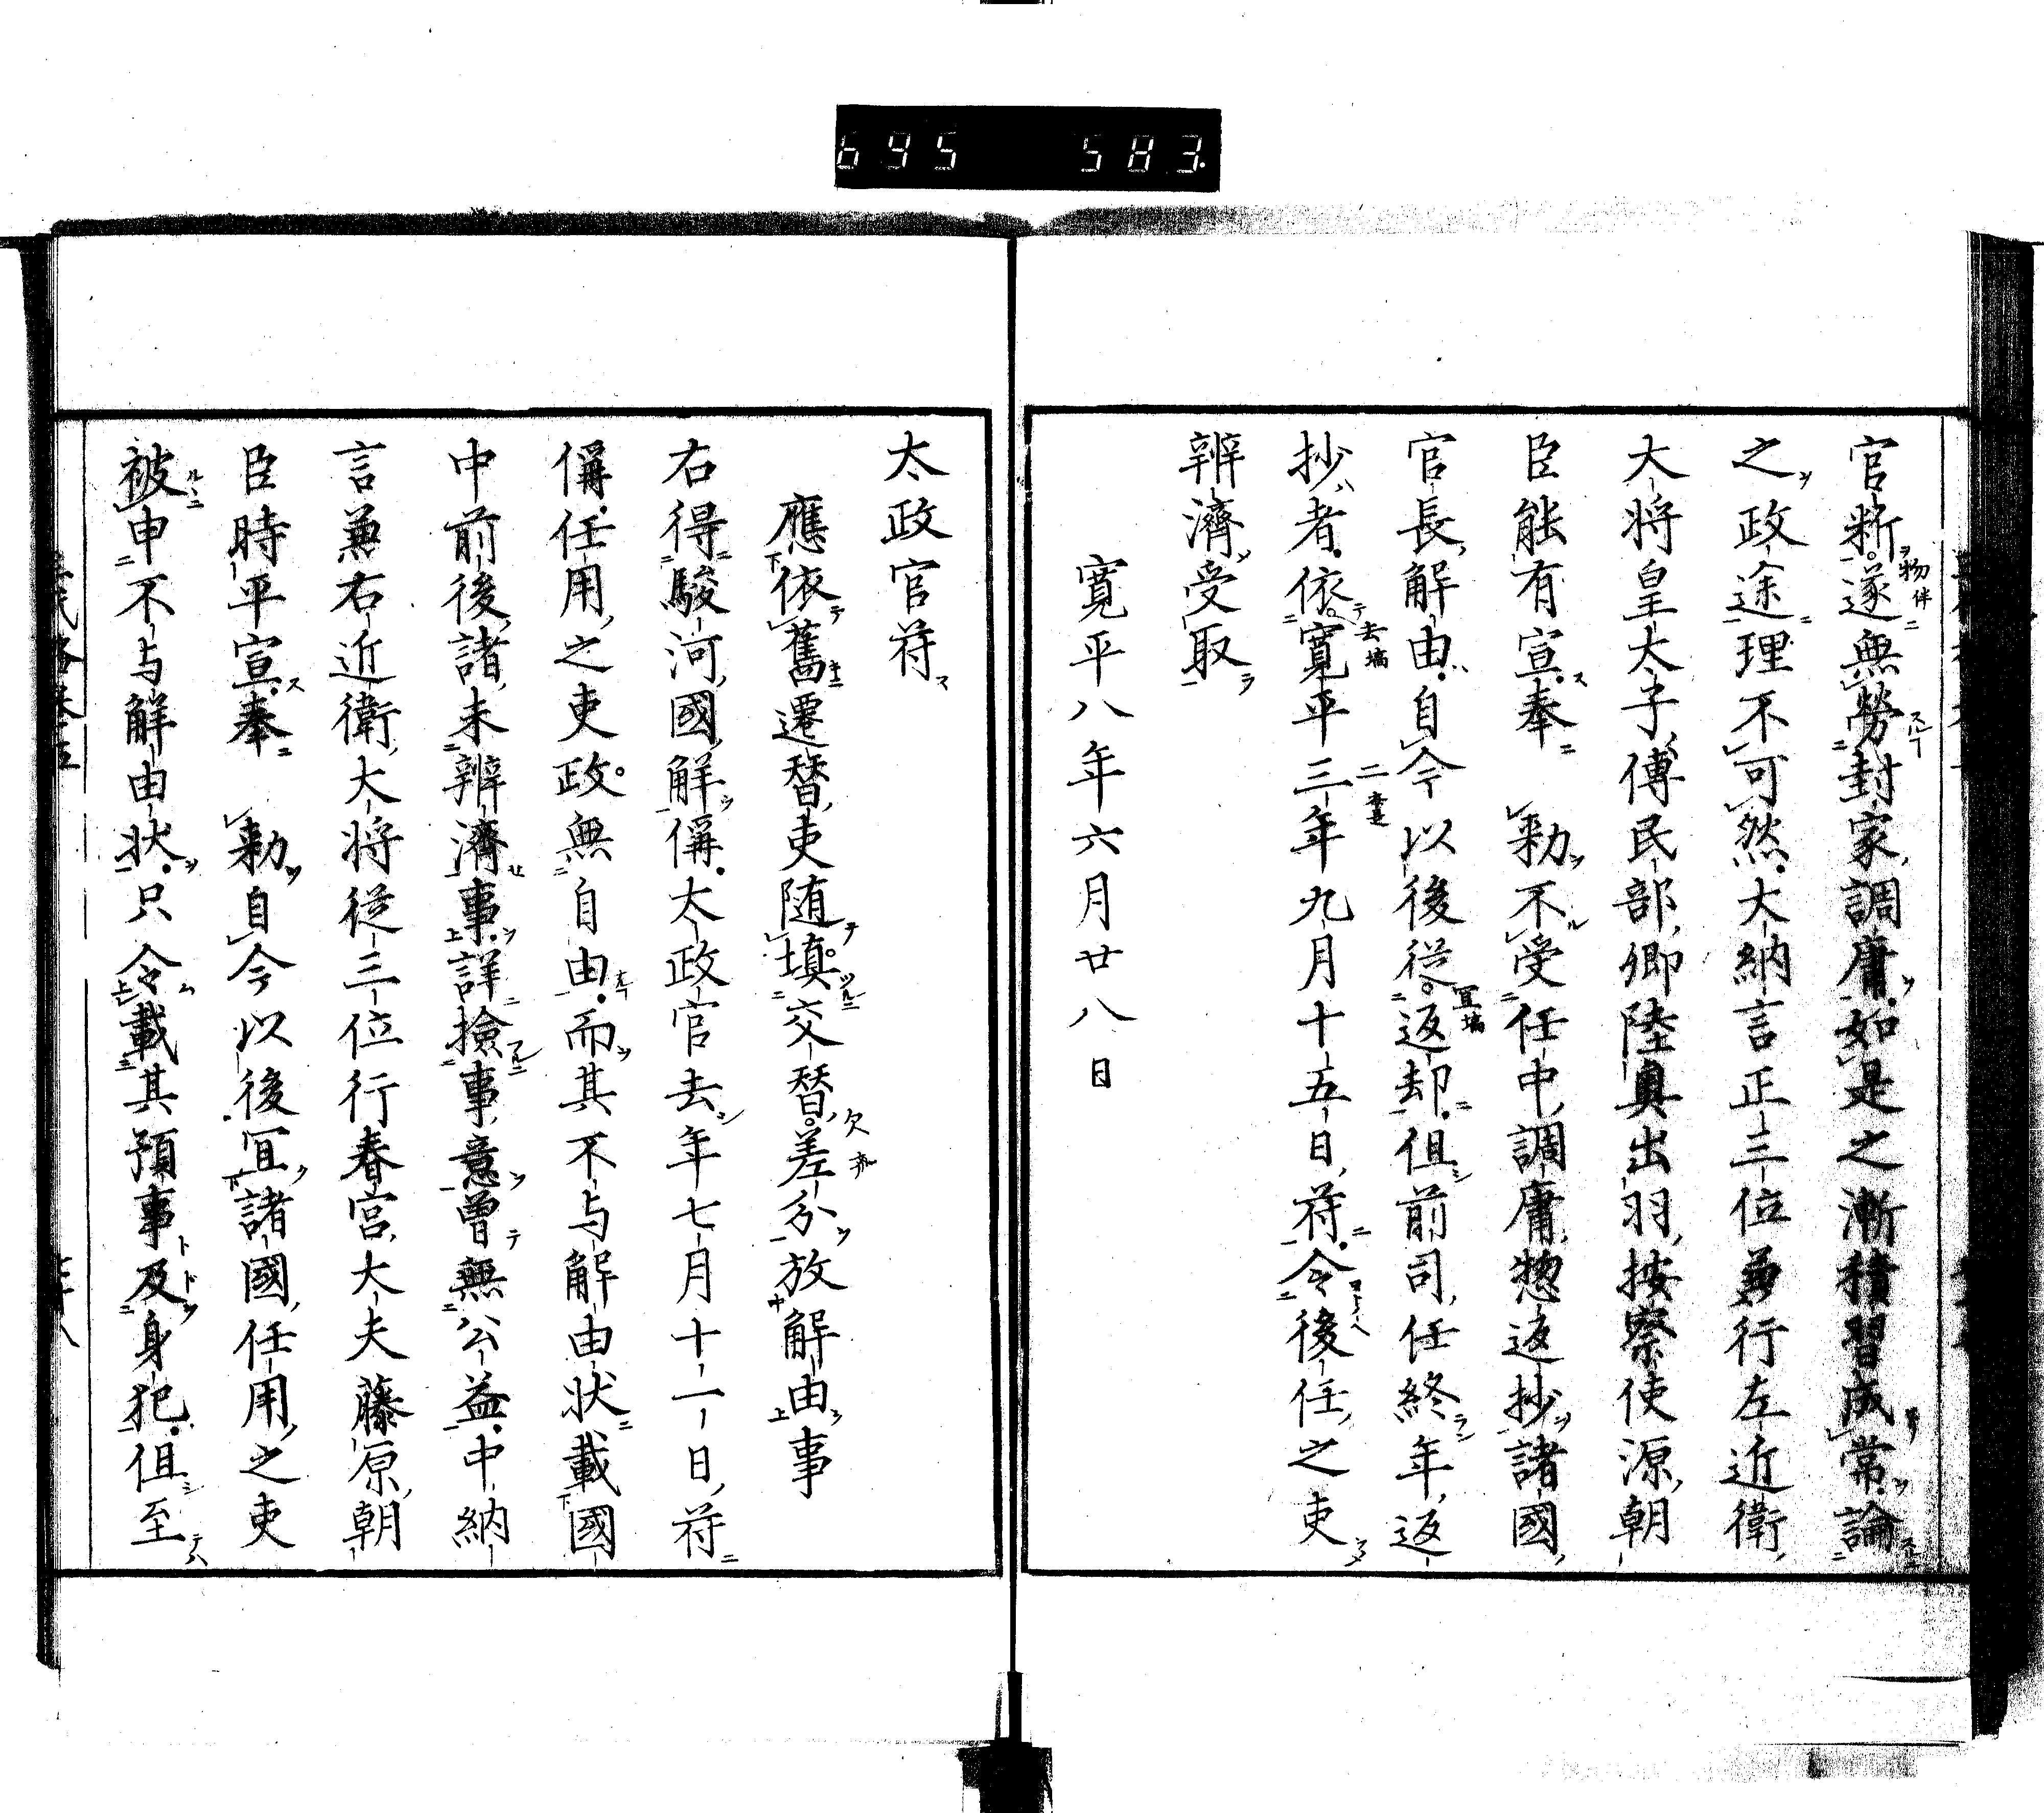 695 583
官断遂無勞封家調庸如是之漸積習成常論
之政途理不可然大納言正三位兼行左近衛
大将皇太子傅民部卿陸奥出羽按察使源朝
臣能有宣奉 勅不受任中調庸惣返抄諸國
官長解由自今以後従返却但前司任終年返
抄者依寛平三年九月十五日符令後任之吏
辨濟受取
寛平八年六月廿八日
太政官符
應依舊遷替吏随填交替差分放解由事
右得駿河國解偁太政官去年七月十一日符
偁任用之吏政無自由而其不与解由状載國
中前後諸未辨濟事詳撿事意曾無公益中納
言兼右近衛大将従三位行春宮大夫藤原朝
臣時平宣奉 勅自今以後冝諸國任用之吏
被申不与解由状只令載其預事及身犯但至